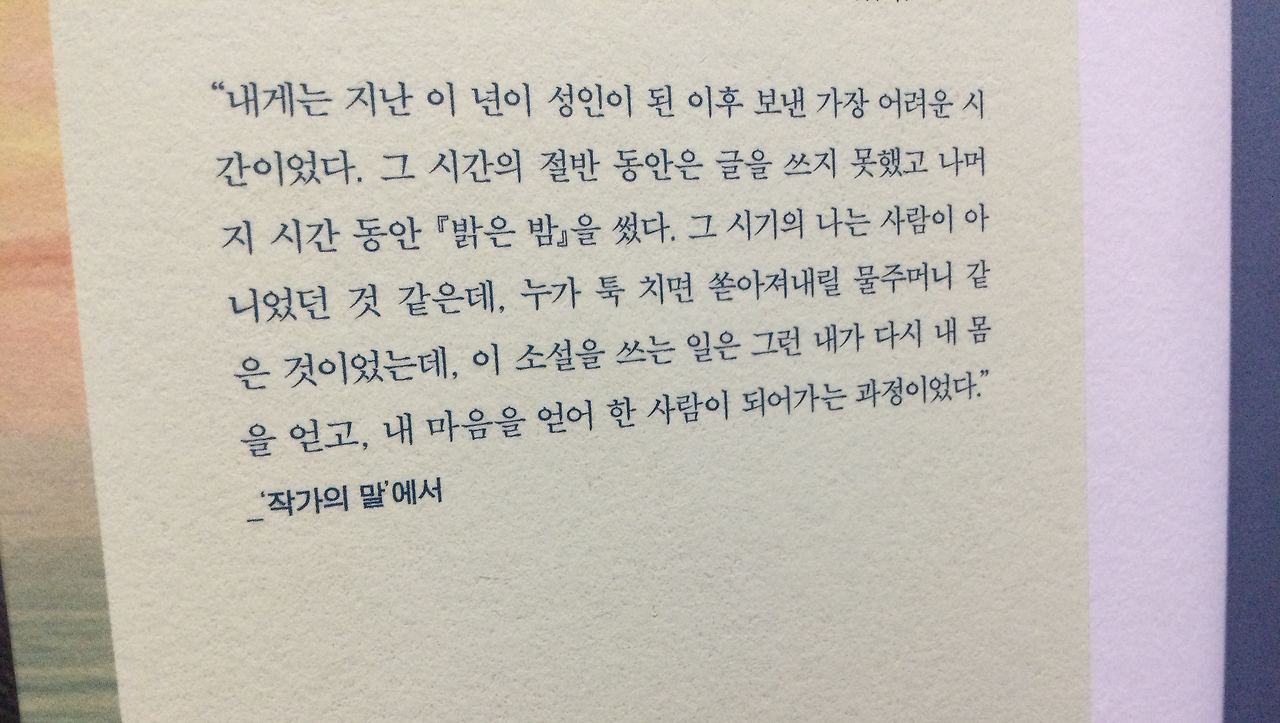 “내게는 지난 이 년이 성인이 된 이후 보낸 가장 어려운 시
간이었다. 그 시간의 절반 동안은 글을 쓰지 못했고 나머
지 시간 동안 『밝은 밤』을 썼다. 그 시기의 나는 사람이 아
니었던 것 같은데, 누가 툭 치면 쏟아져내릴 물주머니 같
은 것이었는데, 이 소설을 쓰는 일은 그런 내가 다시 내 몸
을 얻고, 내 마음을 얻어 한 사람이 되어가는 과정이었다.”
_‘작가의 말’에서